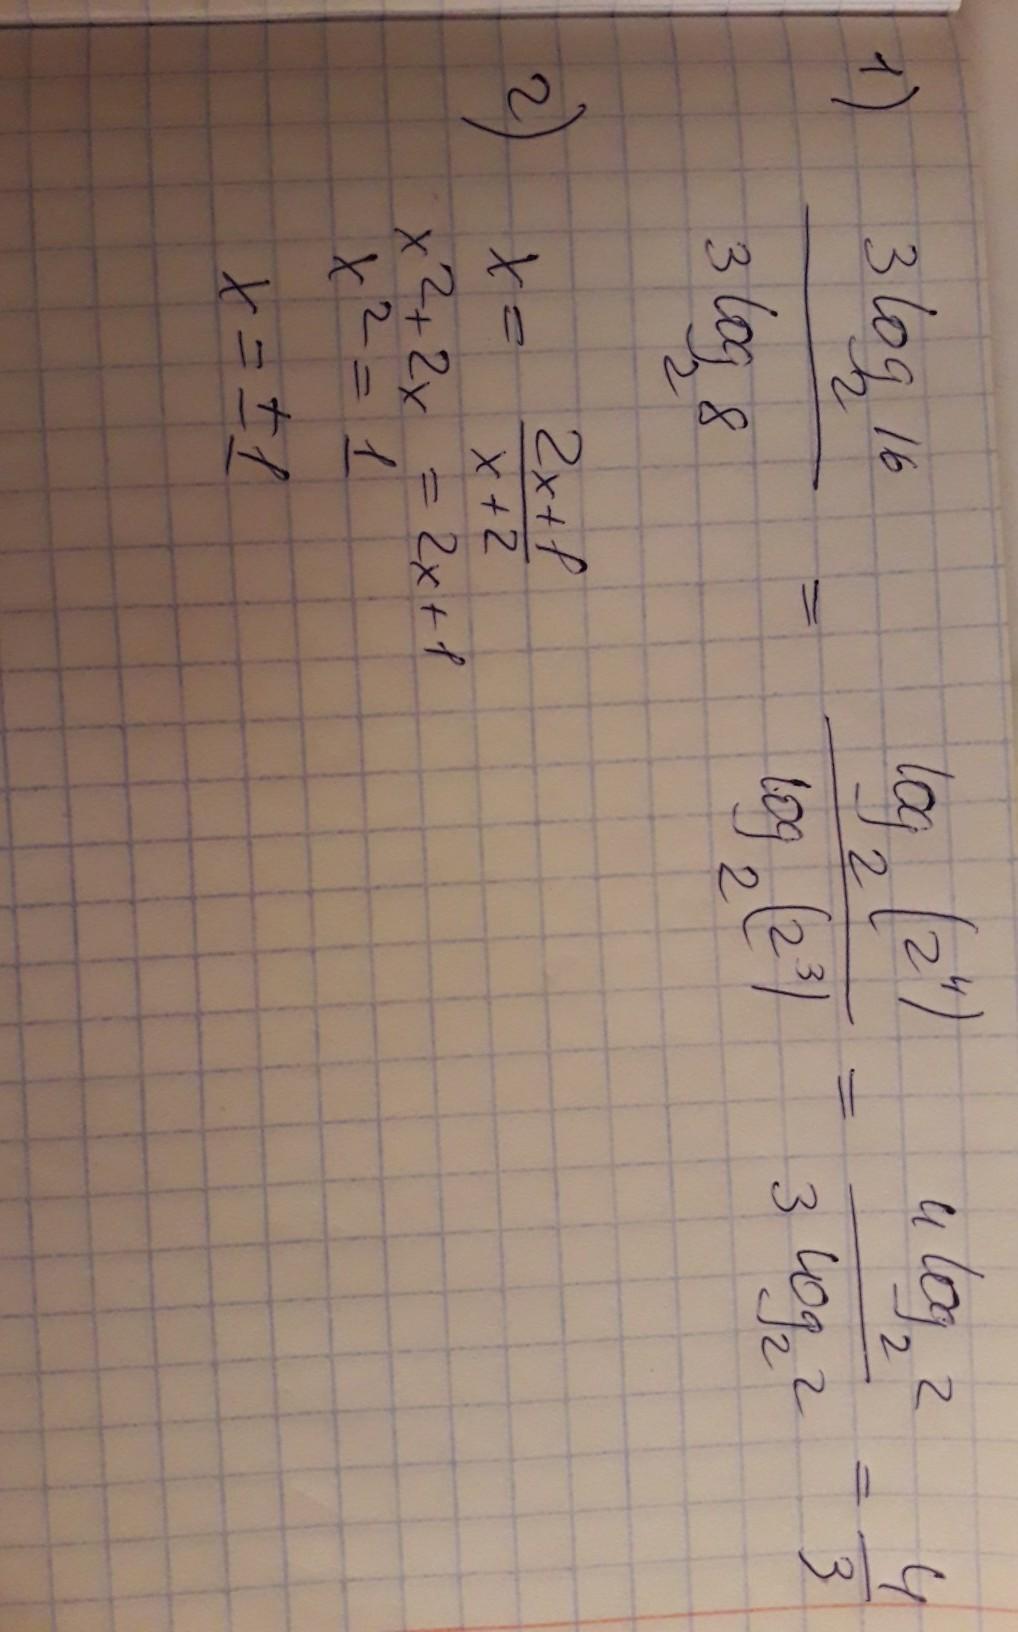 1) 3 log₂ 16 / 3 log₂ 8 = log₂ (2⁴) / log₂ (2³) = 4 log₂ 2 / 3 log₂ 2 = 4/3
2) x = 2x+1 / x+2
x² + 2x = 2x + 1
x² = 1
x = ± 1